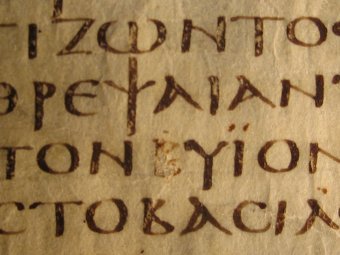 ΓΙΖΩΝΤΟ
ΘΡΕΨΑΙΑΝΤ
ΤΟΝ ΥΪΟΝ
CΤΟΒΑCΙΛ